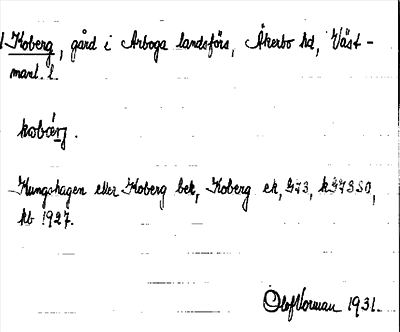 Koberg, gård i Arboga landsförs, Åkerbo hd, Väst-
manl. l.
Kungshagen eller Koberg bek, Koberg ek,
kb 1927.
Olof Norman 1931.